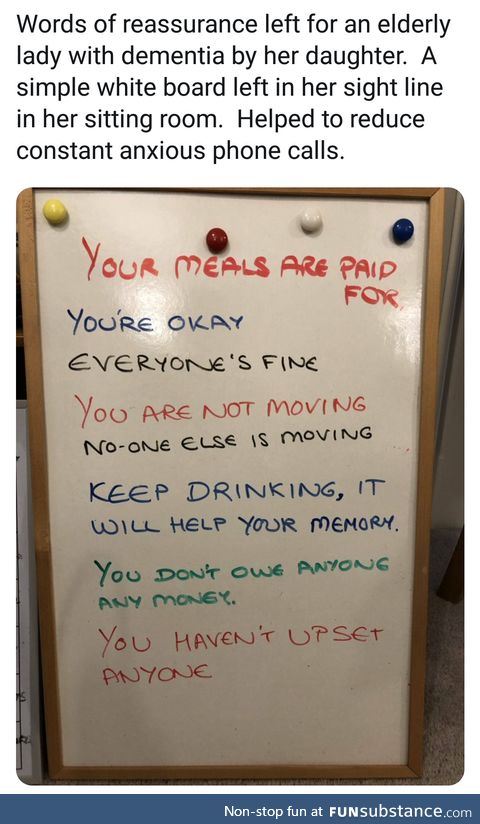 Words of reassurance left for an elderly
lady with dementia by her daughter. A
simple white board left in her sight line
in her sitting room. Helped to reduce
constant anxious phone calls.
YOUR MEALS ARE PAID
FOR.
YOU'RE OKAY
EVERYONE'S FINE
YOU ARE NOT MOVING
NO-ONE ELSE IS MOVING
KEEP DRINKING, IT
WILL HELP YOUR MEMORY.
YOU DON'T OWE ANYONE
ANY MONEY.
YOU HAVEN'T UPSET
ANYONE
Non-stop fun at FUNsubstance.com